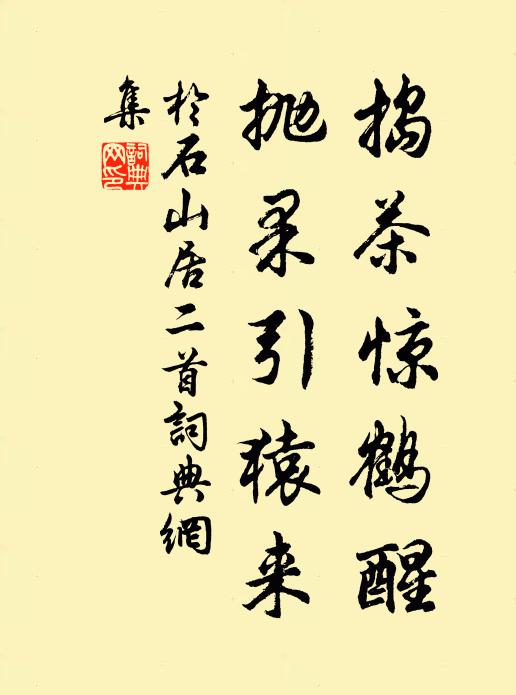 捣茶惊鹤醒
抛果引猿来
於石山居二首詞典網
集
詞典
网印